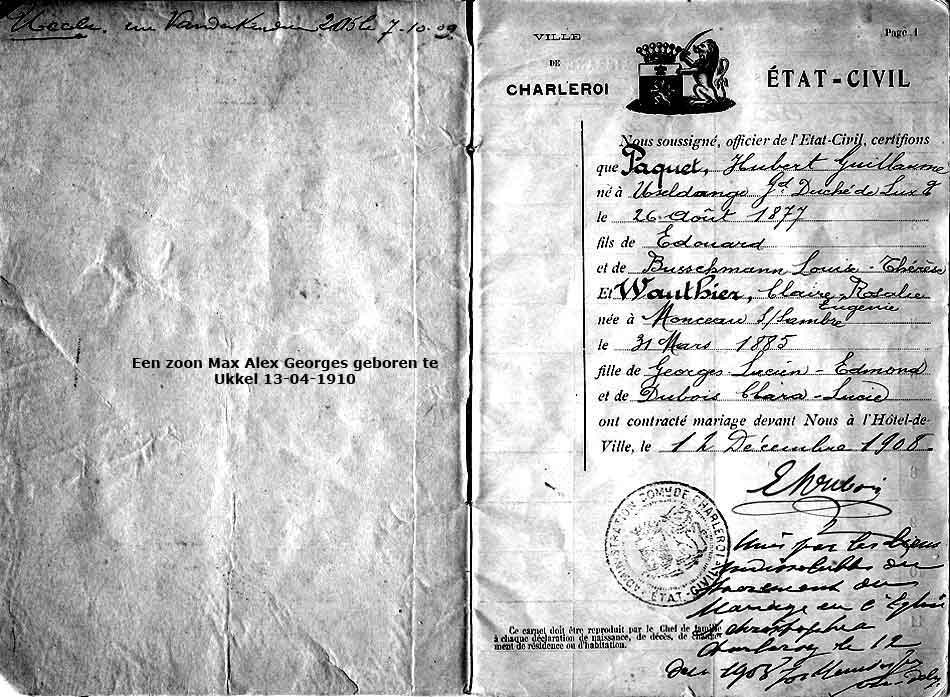 Uccle, rue Vanderkindere 205 le 7-10-09
Een zoon Max Alex Georges geboren te
Ukkel 13-04-1910
Page 1
VILLE
DE
CHARLEROI
ÉTAT-CIVIL
Nous soussigné, officier de l'Etat-Civil, certifions
que Paquet, Hubert Guillaume
né à Useldange Gd Duché de Luxg
le 26 Août 1877
fils de Edouard
et de Busschmann Louise-Thérèse
Et Wauthier, Claire, Rosalie
Eugénie
née à Monceau S/Sambre
le 31 Mars 1885
fille de Georges-Lucien-Edmond
et de Dubois Clara-Lucie
ont contracté mariage devant Nous à l'Hôtel-de-
Ville, le 12 Décembre 1908.
ADMINISTRATION COMle DE CHARLEROI
ÉTAT-CIVIL
Unis par les liens
indissolubles du
sacrement du
Mariage en l'Eglise
St Christophe à
Charleroy le 12
1908
Ce carnet doit être reproduit par le Chef de famille
à chaque déclaration de naissance, de décès, de change-
ment de résidence ou d'habitation.